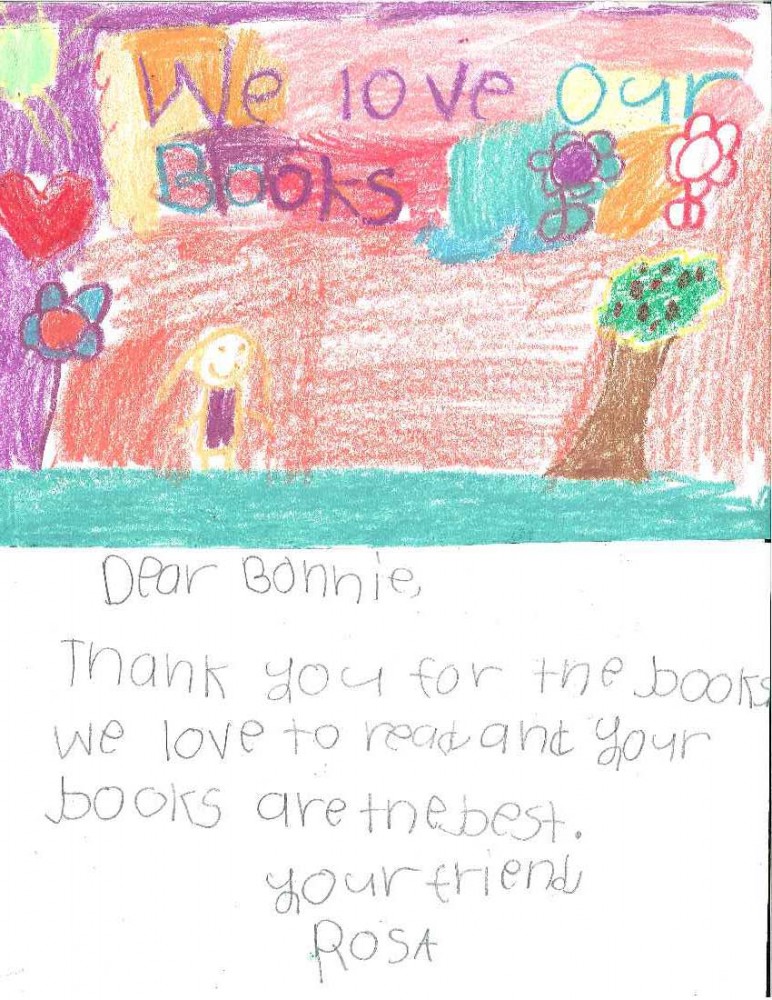 We love our
Books
Dear Bonnie,
Thank you for the books
we love to read and your
books are the best.
your friend
ROSA